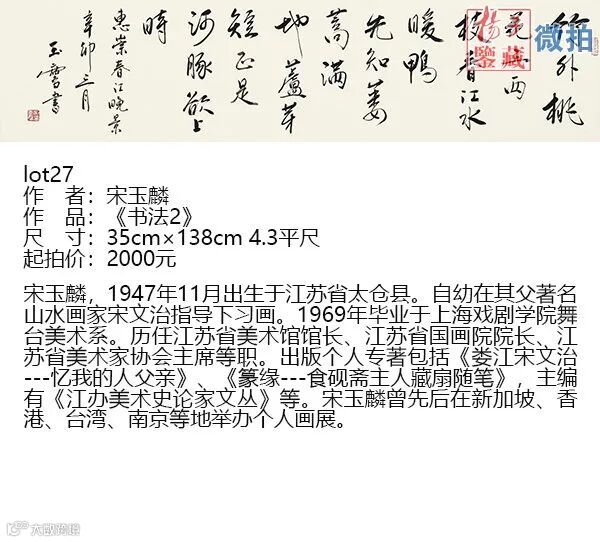 竹外桃
花三两
枝春江水
暖鸭
先知蒌
蒿满
地蘆芽
短正是
河豚欲上
時
惠崇春江晚景
辛卯三月
玉麐書
微拍
lot27
作 者：宋玉麟
作 品：《书法2》
尺 寸：35cm×138cm 4.3平尺
起拍价：2000元
宋玉麟，1947年11月出生于江苏省太仓县。自幼在其父著名
山水画家宋文治指导下习画。1969年毕业于上海戏剧学院舞
台美术系。历任江苏省美术馆馆长、江苏省国画院院长、江
苏省美术家协会主席等职。出版个人专著包括《娄江宋文治
---忆我的人父亲》、《篆缘---食砚斋主人藏扇随笔》，主编
有《江办美术史论家文丛》等。宋玉麟曾先后在新加坡、香
港、台湾、南京等地举办个人画展。
大数跨境